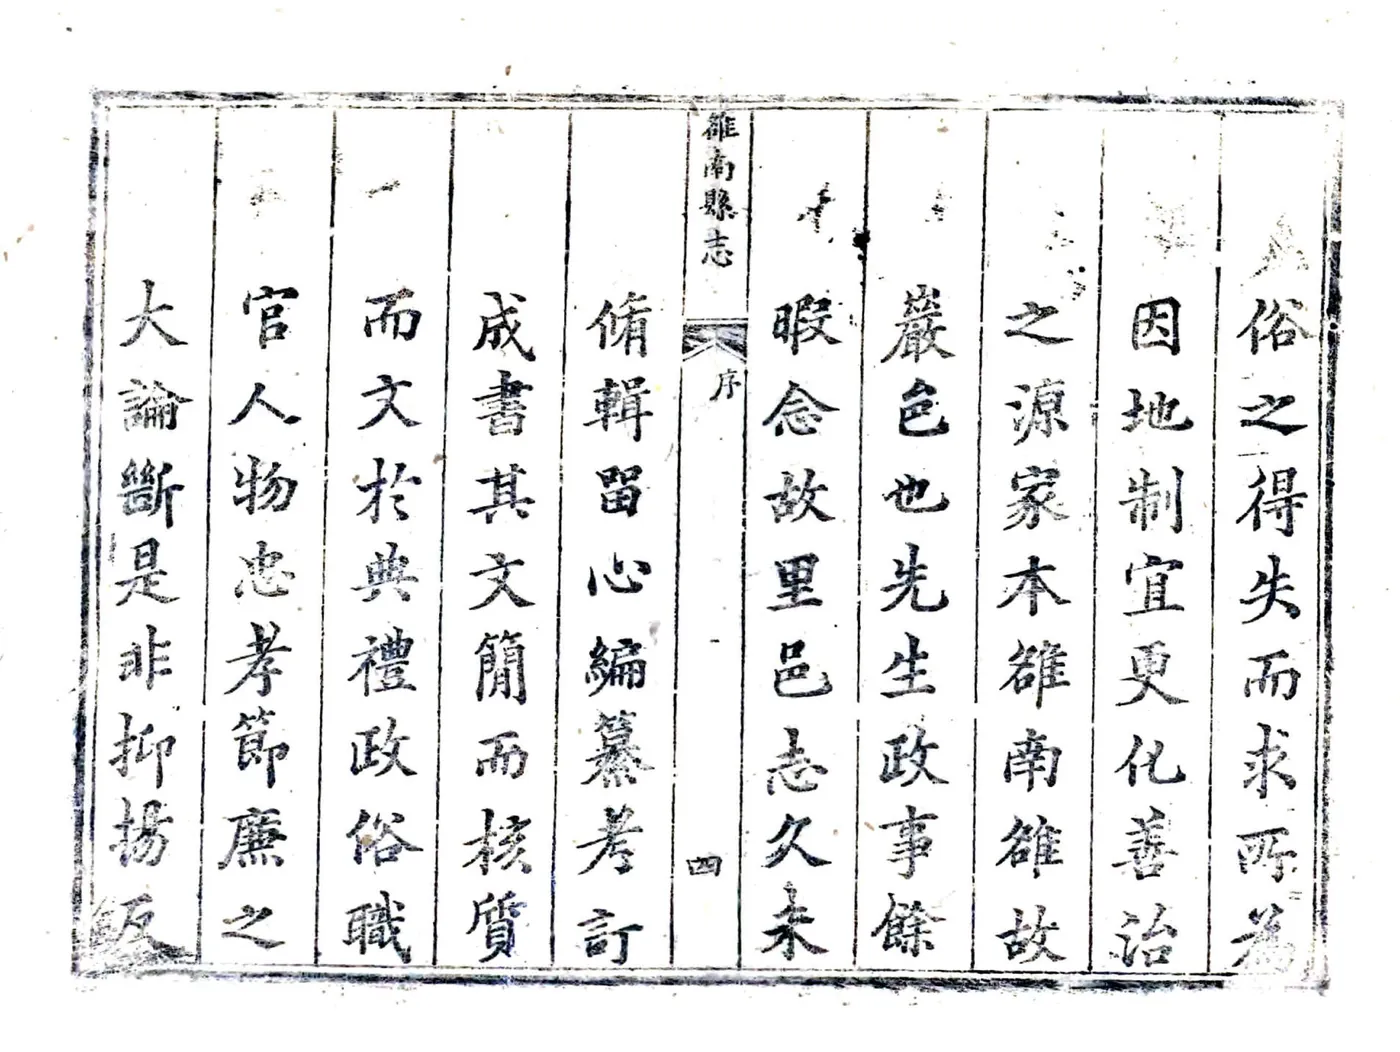 俗之得失而求所為
因地制宜更化善治
之源家本雒南雒故
巖色也先生政事餘
暇念故里邑志久未
雒南縣志
序
四
脩輯留心編纂考訂
成書其文簡而核質
而文於典禮政俗職
官人物忠孝節廉之
大論斷是非抑揚